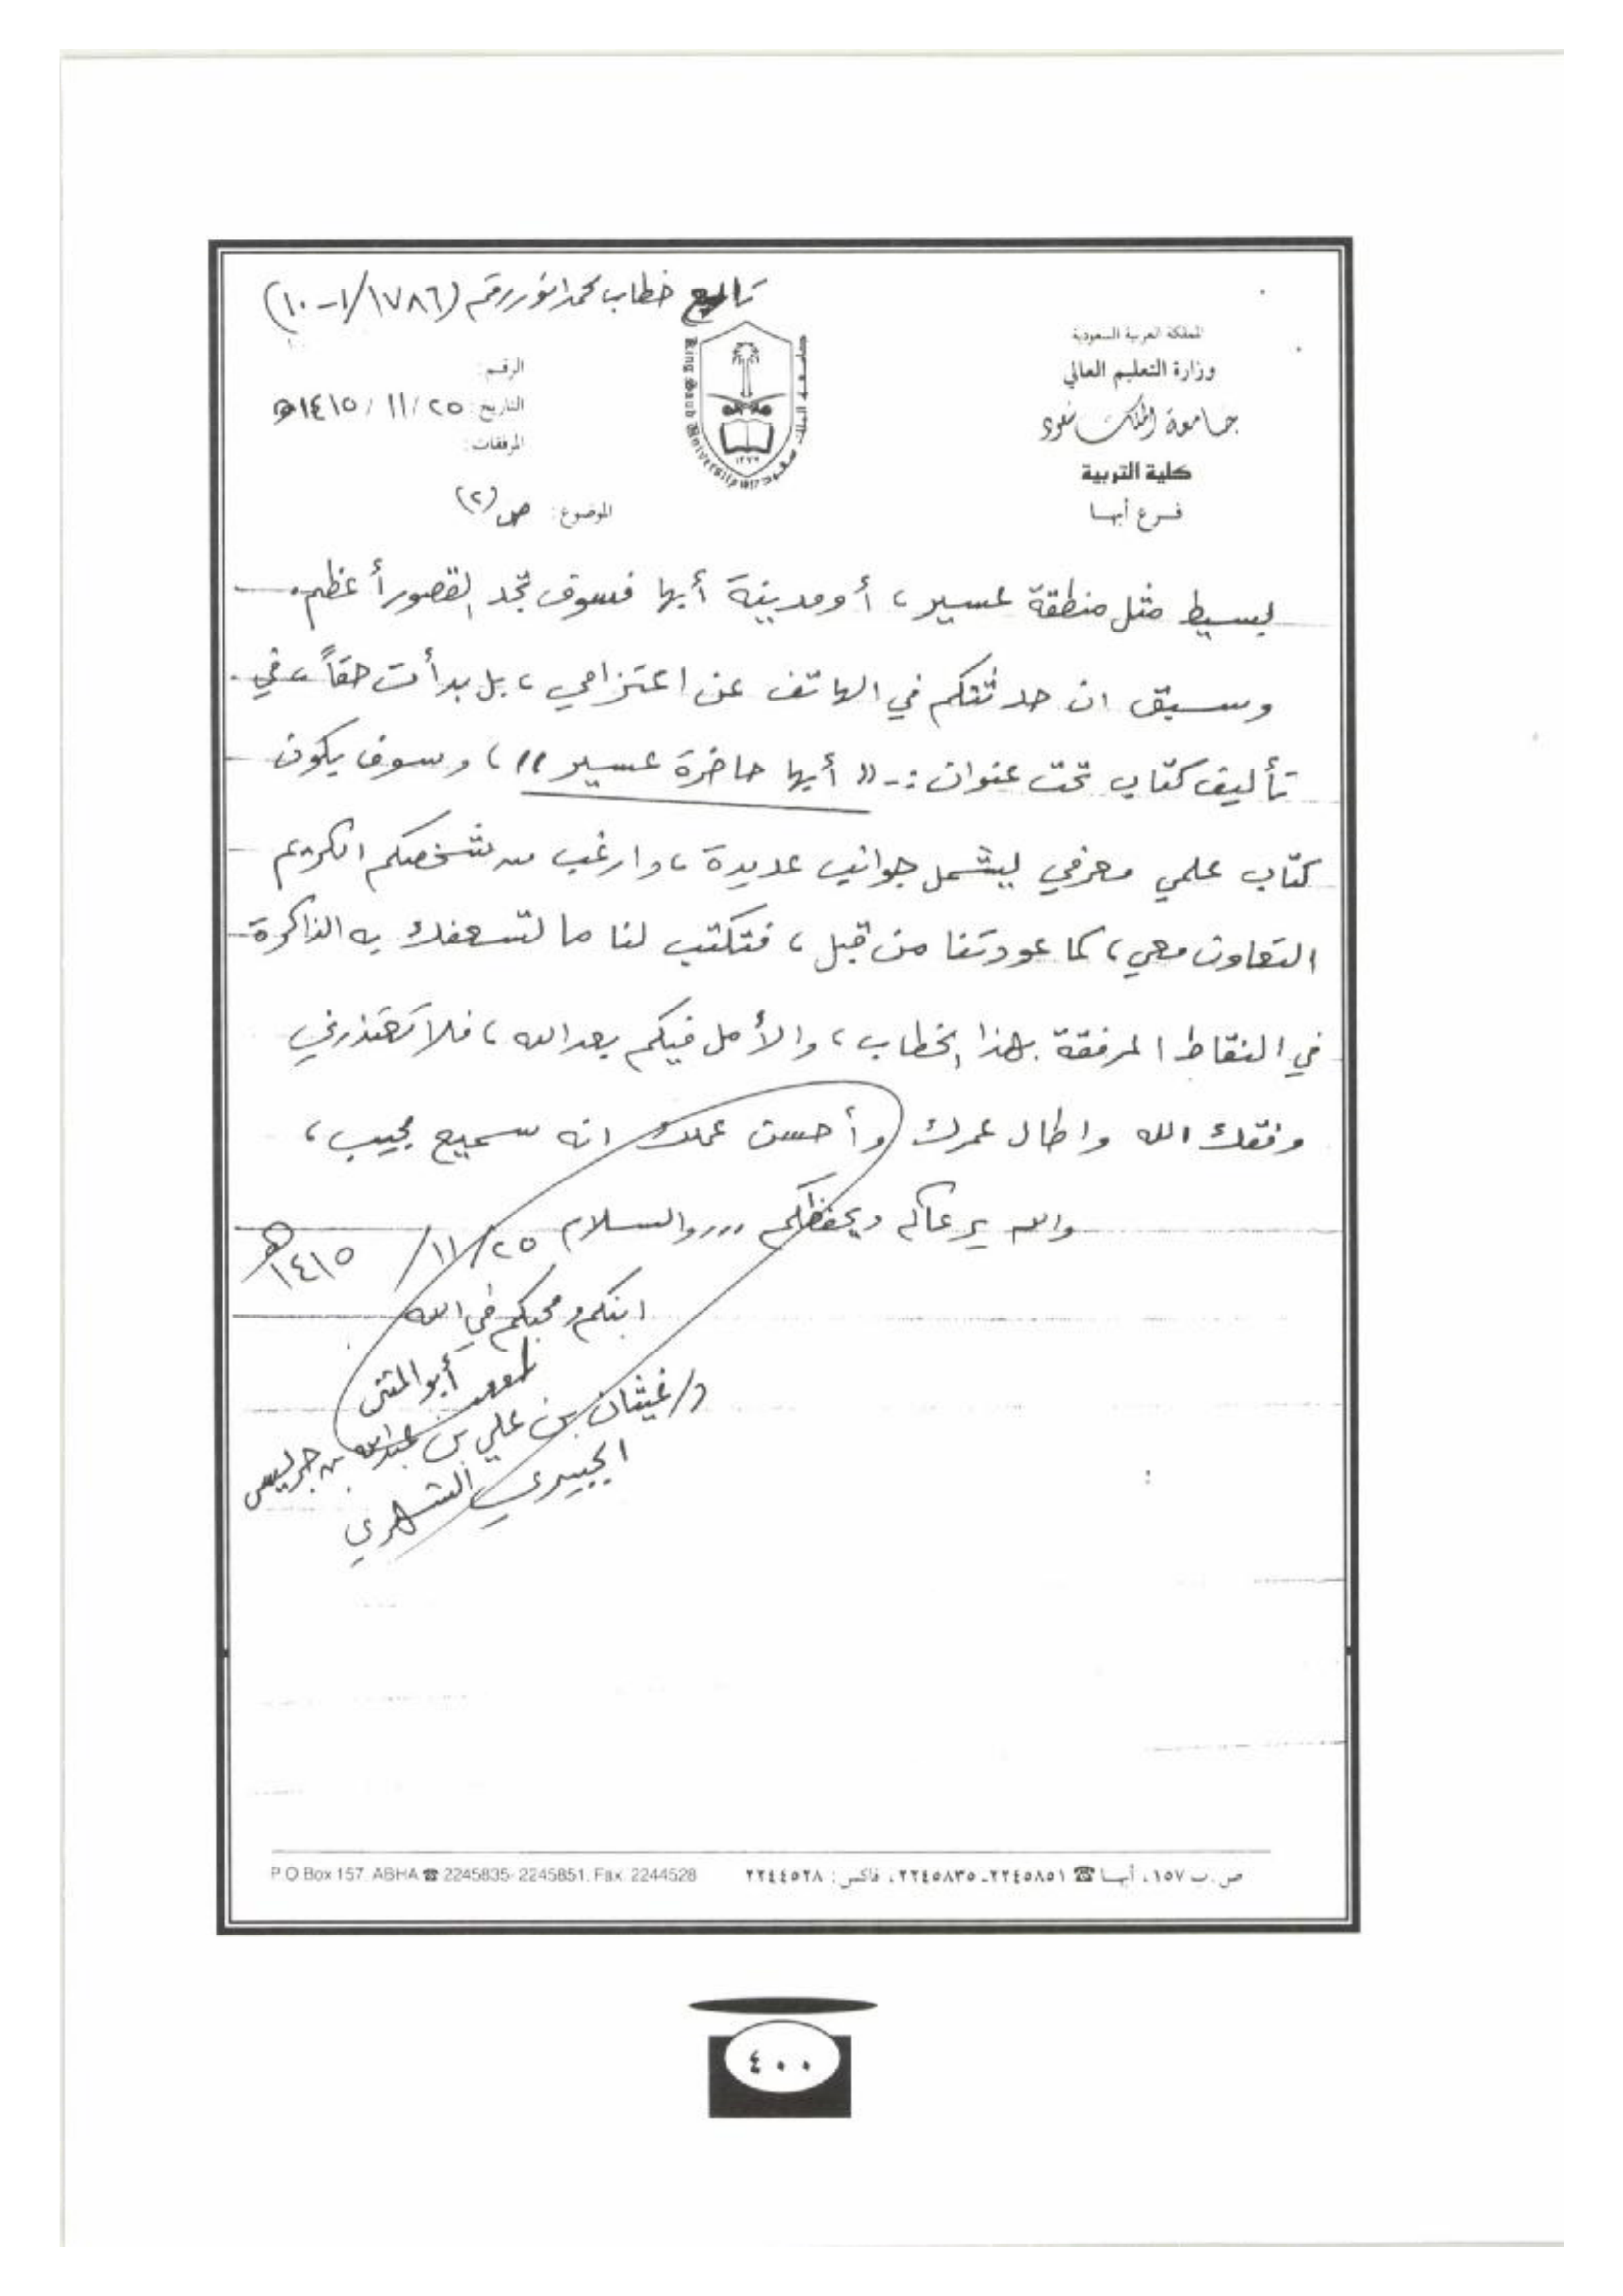 تابع خطاب محمد انور رقم (١٧٨٦/ ١-١٠)
المملكة العربية السعودية
وزارة التعليم العالي
جامعة الملك سعود
كلية التربية
فرع أبها
جامعة الملك سعود
King Saud University
الرقم:
التاريخ: ٢٥/ ١١/ ١٤١٥هـ
المرفقات:
الموضوع: ص (٢)
بسيط مثل منطقة عسير، أو مدينة أبها فسوف تجد القصور أعظم.
وسبق ان حدثتكم في الهاتف عن اعتزامي، بل بدأت حقاً، في
تأليف كتاب تحت عنوان :- (( أبها حاضرة عسير ))، وسوف يكون
كتاب علمي معرفي ليشمل جوانب عديدة، وارغب من شخصكم الكريم
التعاون معي، كما عودتنا من قبل، فتكتب لنا ما تسعفك به الذاكرة
في النقاط المرفقة بهذا الخطاب، والأمل فيكم بعد الله، فلا تعتذرني
وفقك الله واطال عمرك وأحسن عملك انه سميع مجيب،
والله يرعاكم ويحفظكم ،،،، والسلام ٢٥/ ١١/ ١٤١٥هـ
ابنكم ومحبكم في الله
أبو المثنى
د/ غيثان بن علي بن عبدالله بن جريس
الجبيري الشهري
ص.ب ١٥٧، أبها ☎ ٢٢٤٥٨٥١ـ٢٢٤٥٨٣٥، فاكس: ٢٢٤٤٥٢٨
P O Box 157. ABHA ☎ 2245835- 2245851. Fax. 2244528
٤٠٠